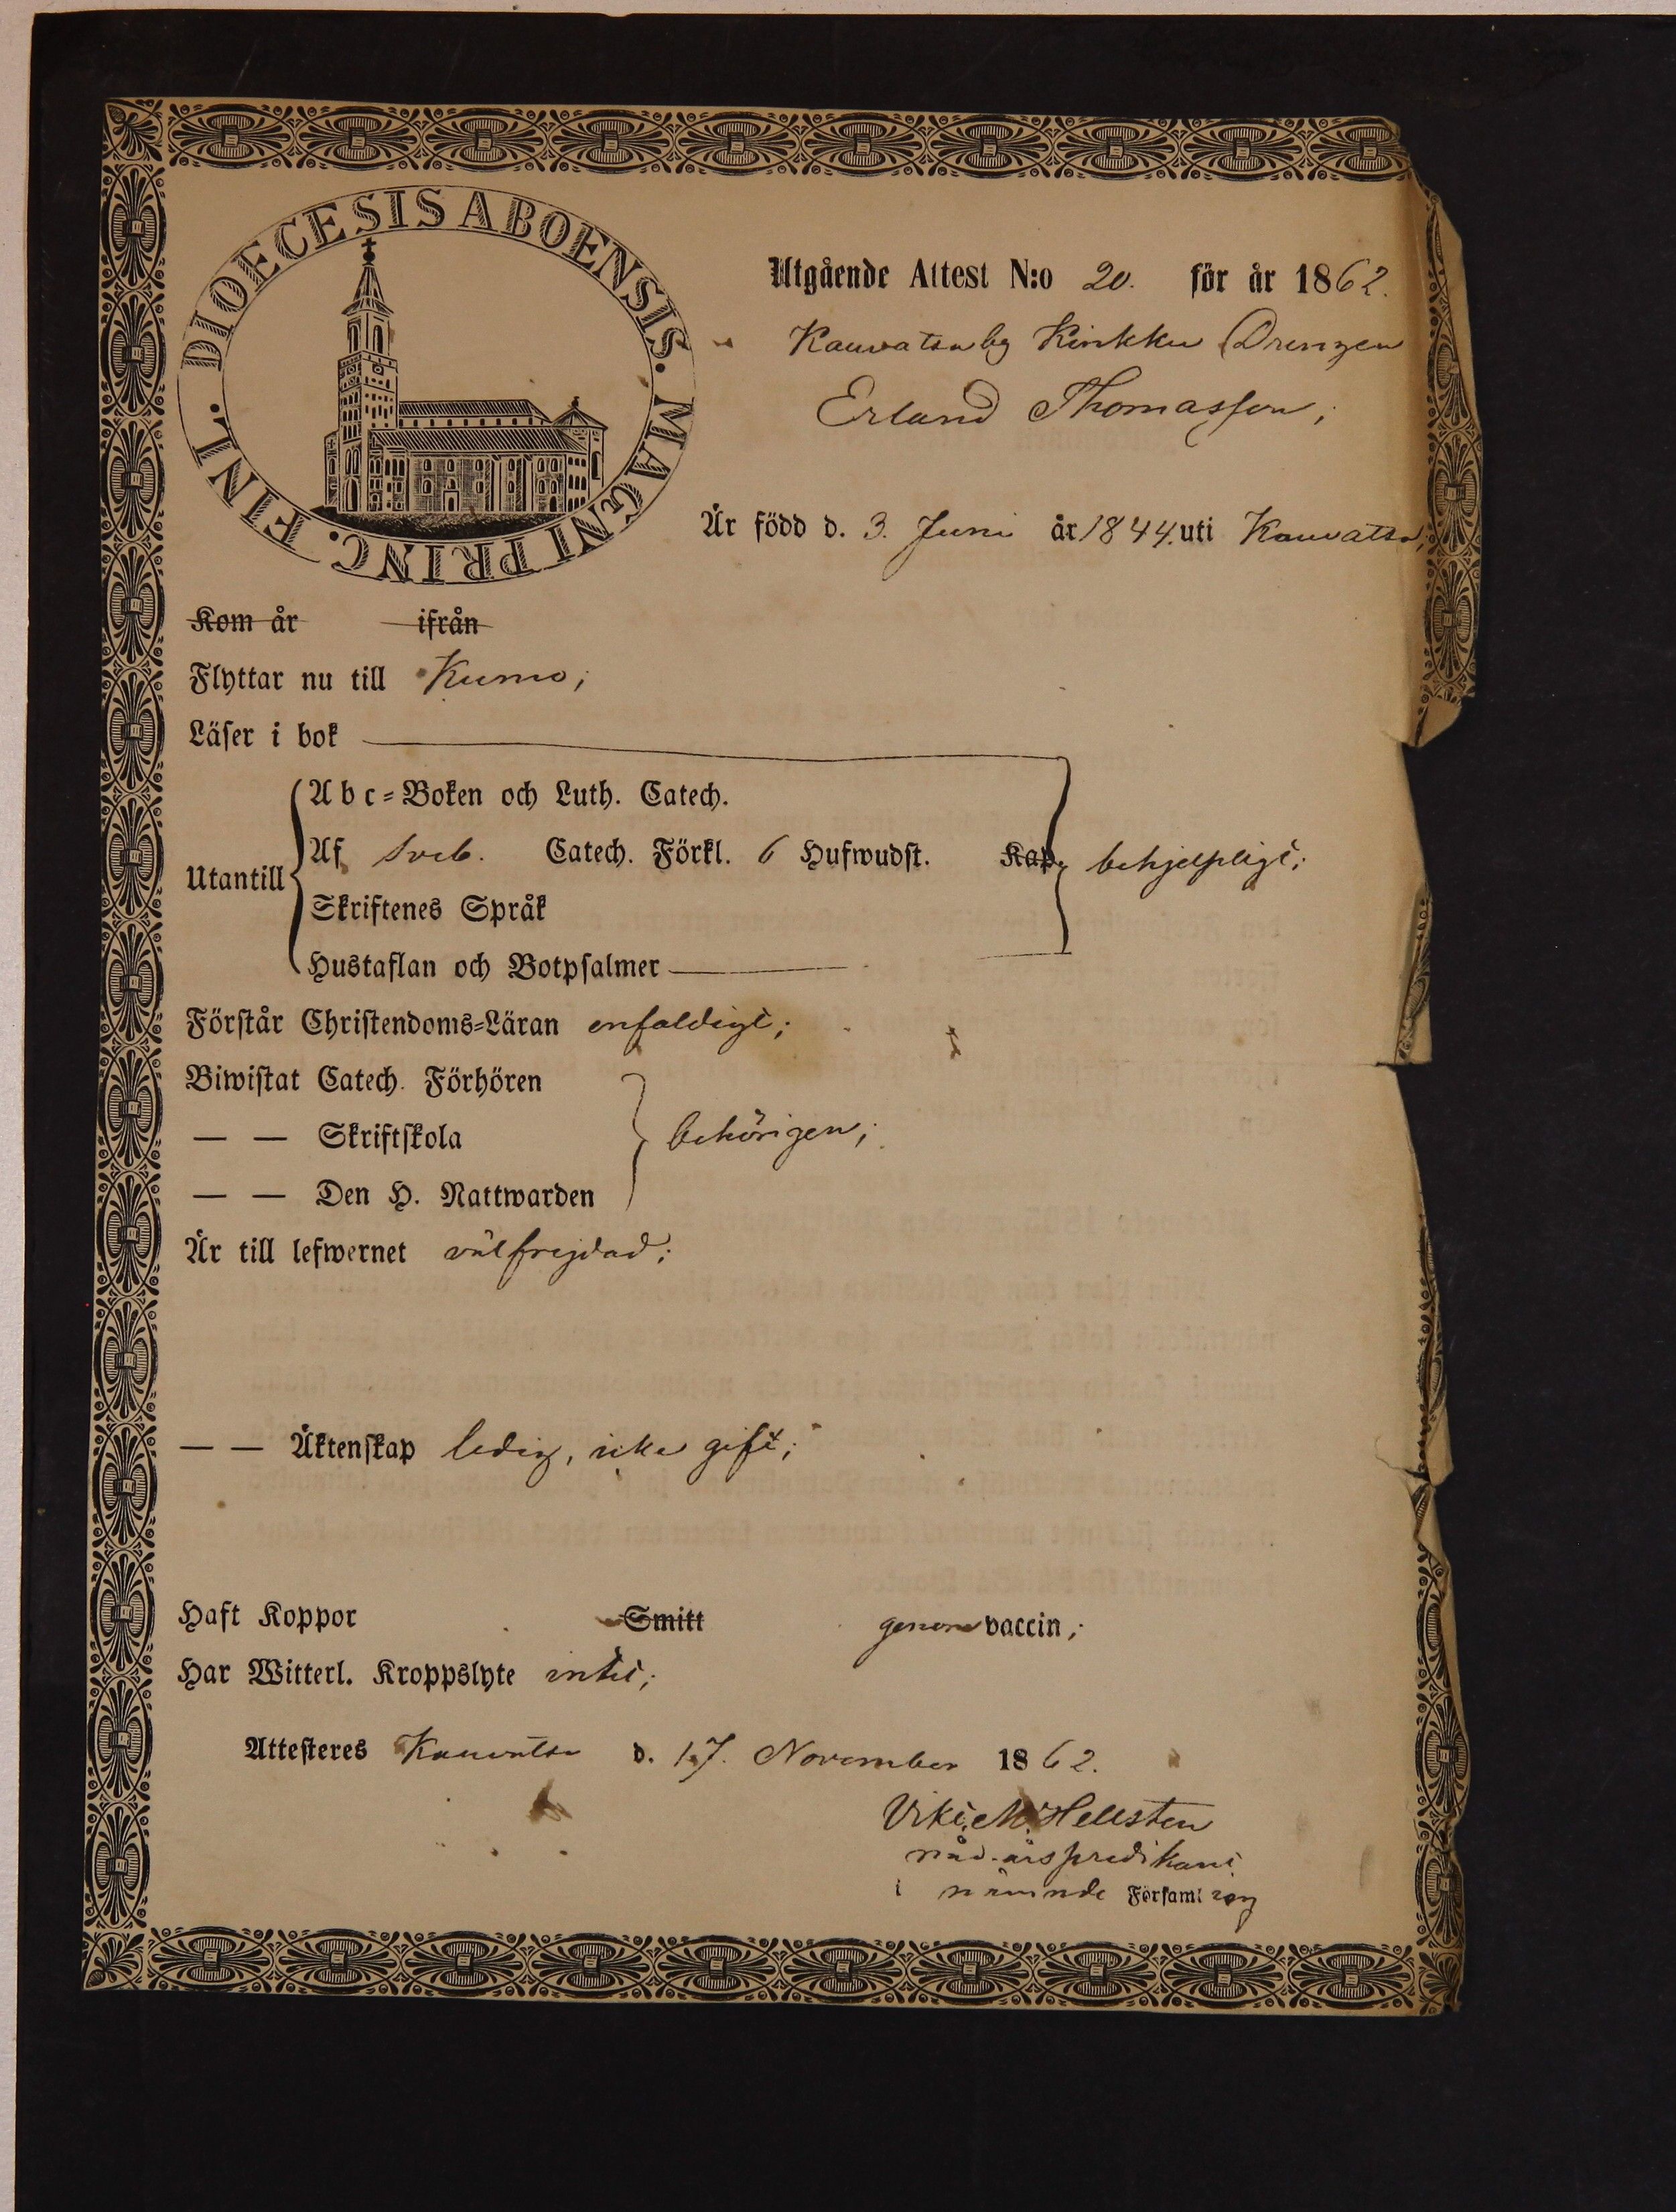 DIOECESIS ABOENSIS. MAGNI PRINC. FINL.
Utgående Attest N:o 20. för år 1862.
Kauvatsa by Kinkku Drengen
Erland Thomasson;
Är född d. 3. Juni år 1844. uti Kauvatsa;
Kom år ifrån
Flyttar nu till Kumo;
Läser i bok
Abc-Boken och Luth. Catech.
Utantill Af Sveb. Catech. Förkl. 6 Hufwudst. Kap. behjelpligt;
Skriftenes Språk
Hustaflan och Botpsalmer
Förstår Christendoms-Läran enfaldigt;
Biwistat Catech. Förhören
— — Skriftskola behörigen;
— — Den H. Nattwarden
Är till lefwernet välfrejdad;
— — Äktenskap ledig, icke gift;
Haft Koppor Smitt genom vaccin;
Har Witterl. Kroppslyte intet;
Attesteres Kauvatsa d. 17. November 1862.
Hellsten
nåd.årspredikant
i nämnde Församling